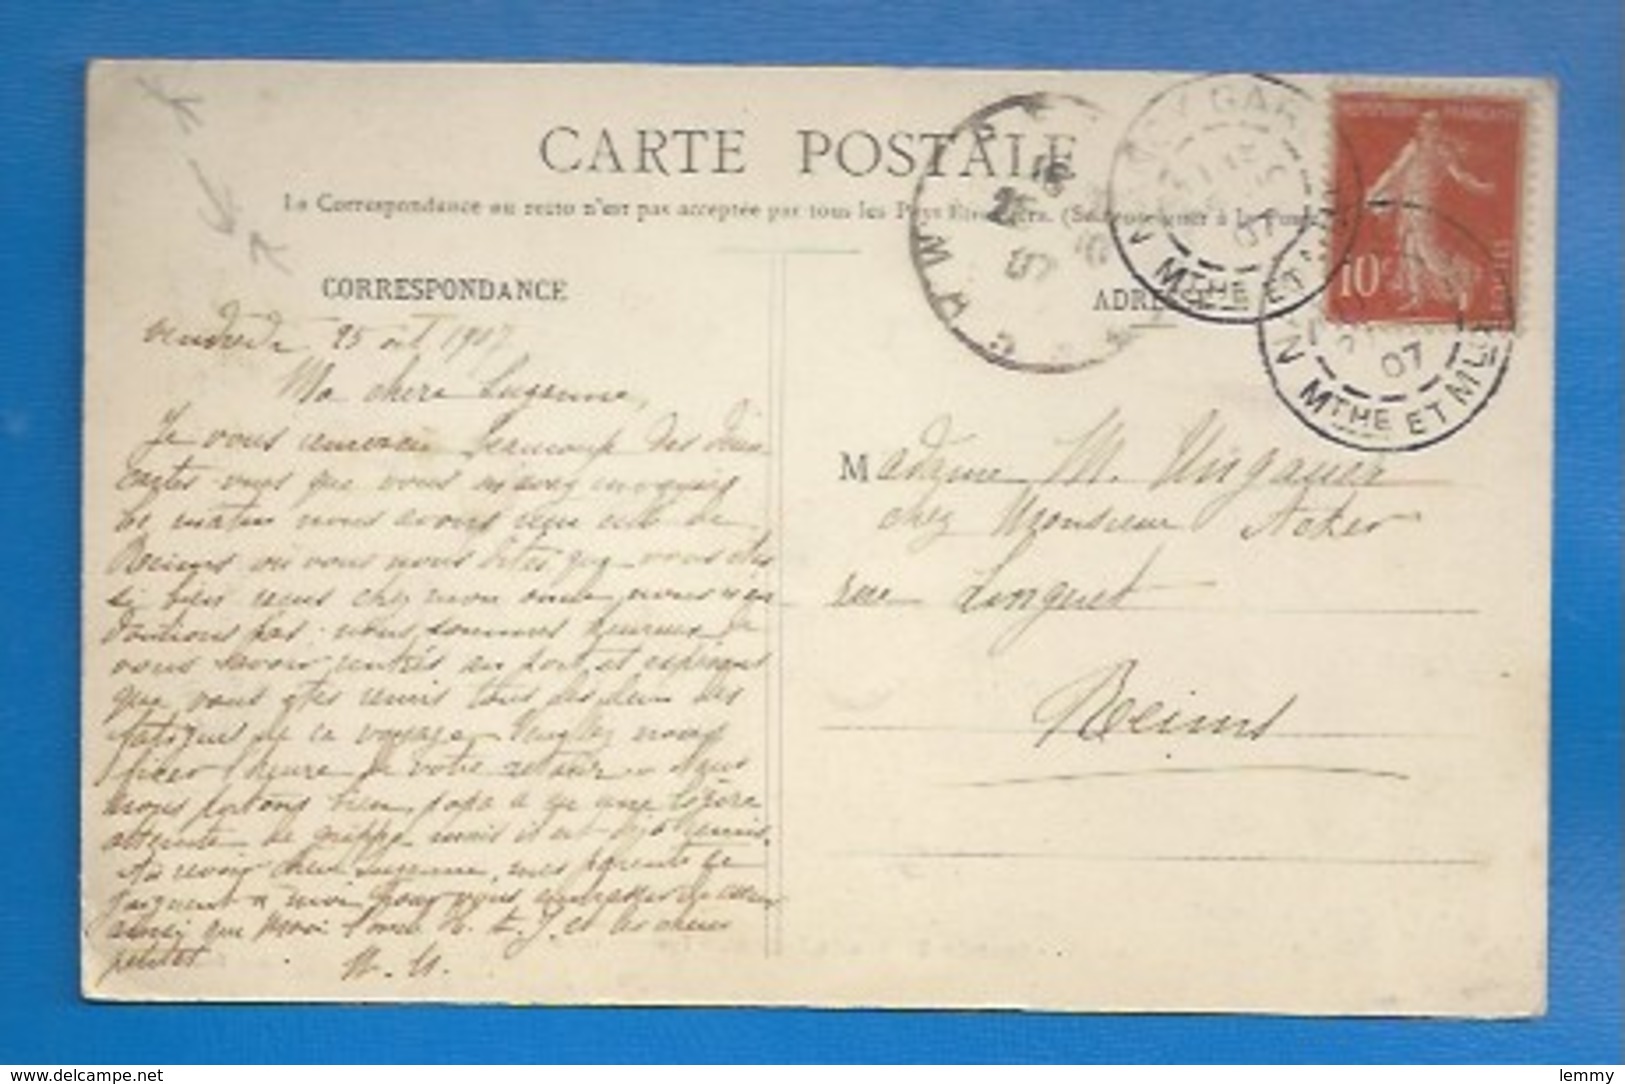 CARTE POSTALE
La Correspondance au recto n'est pas acceptée par tous les Pays Etrangers. (Se renseigner à la Poste)
CORRESPONDANCE
ADRESSE
NANCY GARE
MTHE ET MLLE
07
REPUBLIQUE FRANÇAISE
10c
MTHE ET MLLE
07
MARNE
25
07
Vendredi 25 oct 1907
Ma chère Suzanne,
Je vous remercie beaucoup des deux
cartes-vues que vous m'avez envoyées
Ce matin nous avons reçu celle de
Reims où vous nous dites que vous êtes
si bien reçus chez mon oncle, nous n'en
doutions pas. nous sommes heureux de
vous savoir rentrés au port, et espérons
que vous êtes remis tous les deux des
fatigues de ce voyage. Veuillez nous
fixer l'heure de votre retour. Nous
nous portons bien, papa a eu une légère
atteinte de grippe mais il est déjà remis.
Au revoir chère Suzanne, mes parents se
joignent à moi pour vous embrasser de cœur
ainsi que mon oncle et les chères
petites
Madame M.
chez Monsieur Acker
rue Linguet
Reims
delcampe.net
lemmy